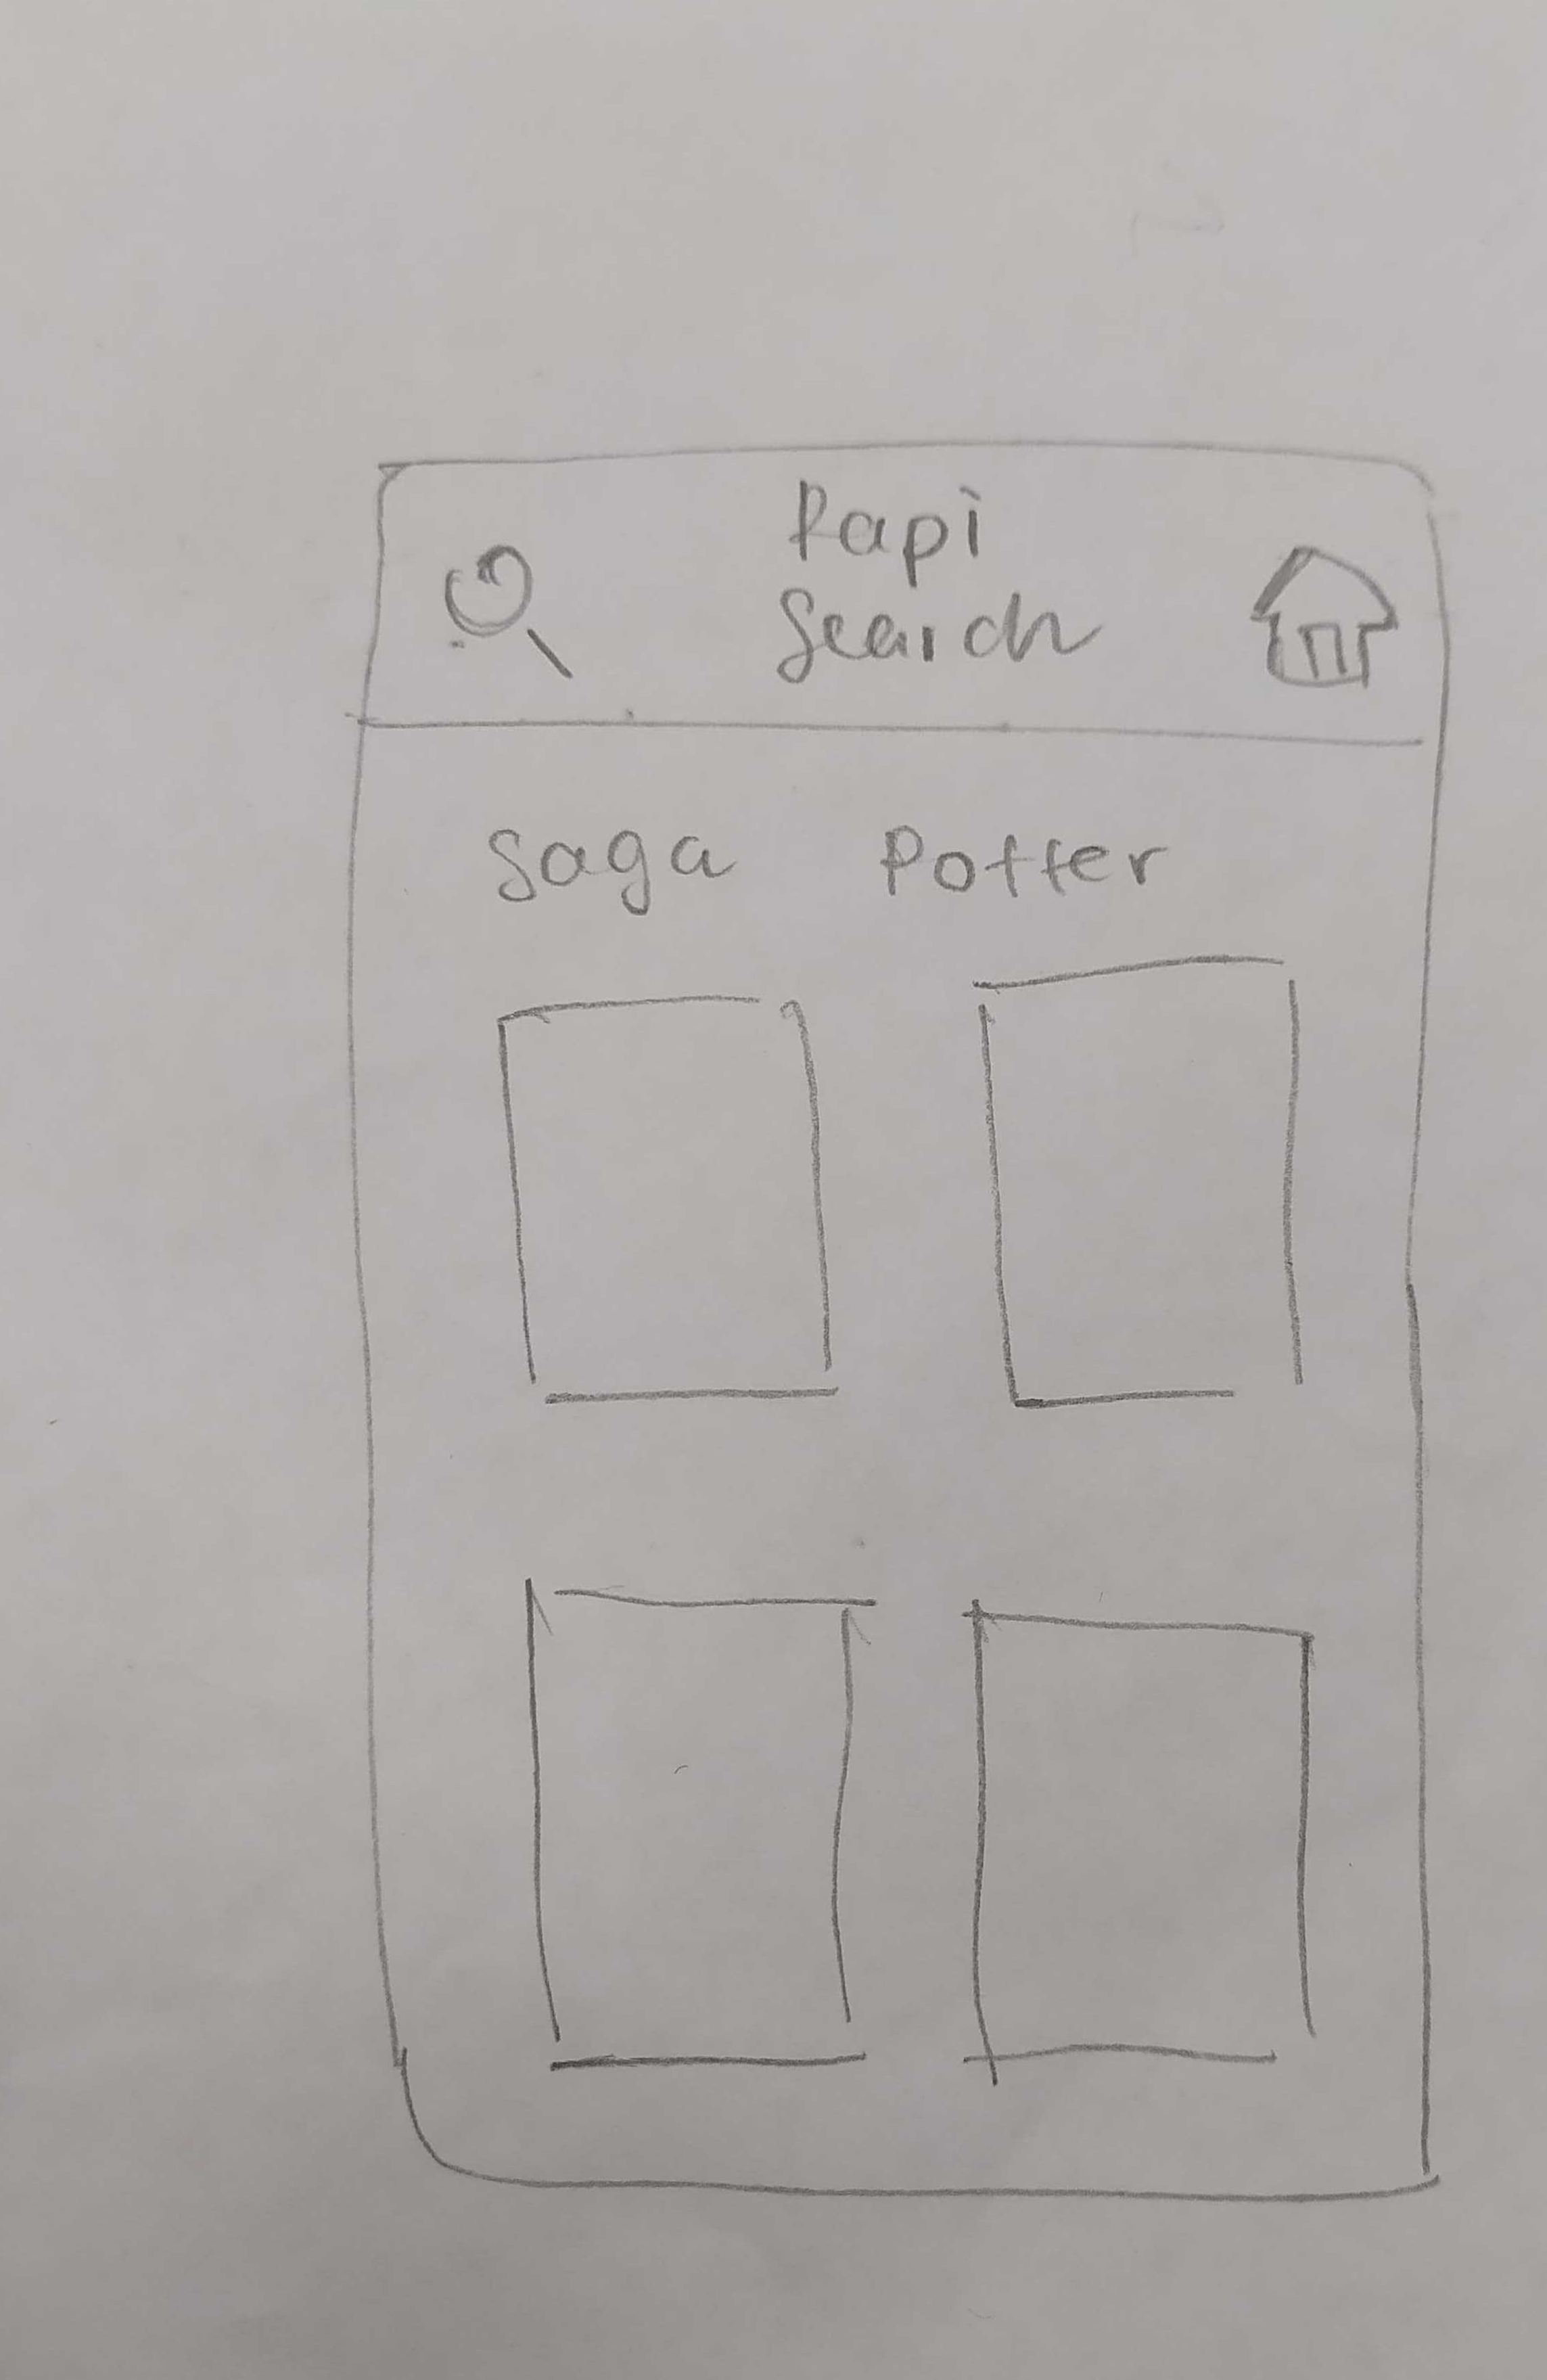 Papi
Search
Saga Potter